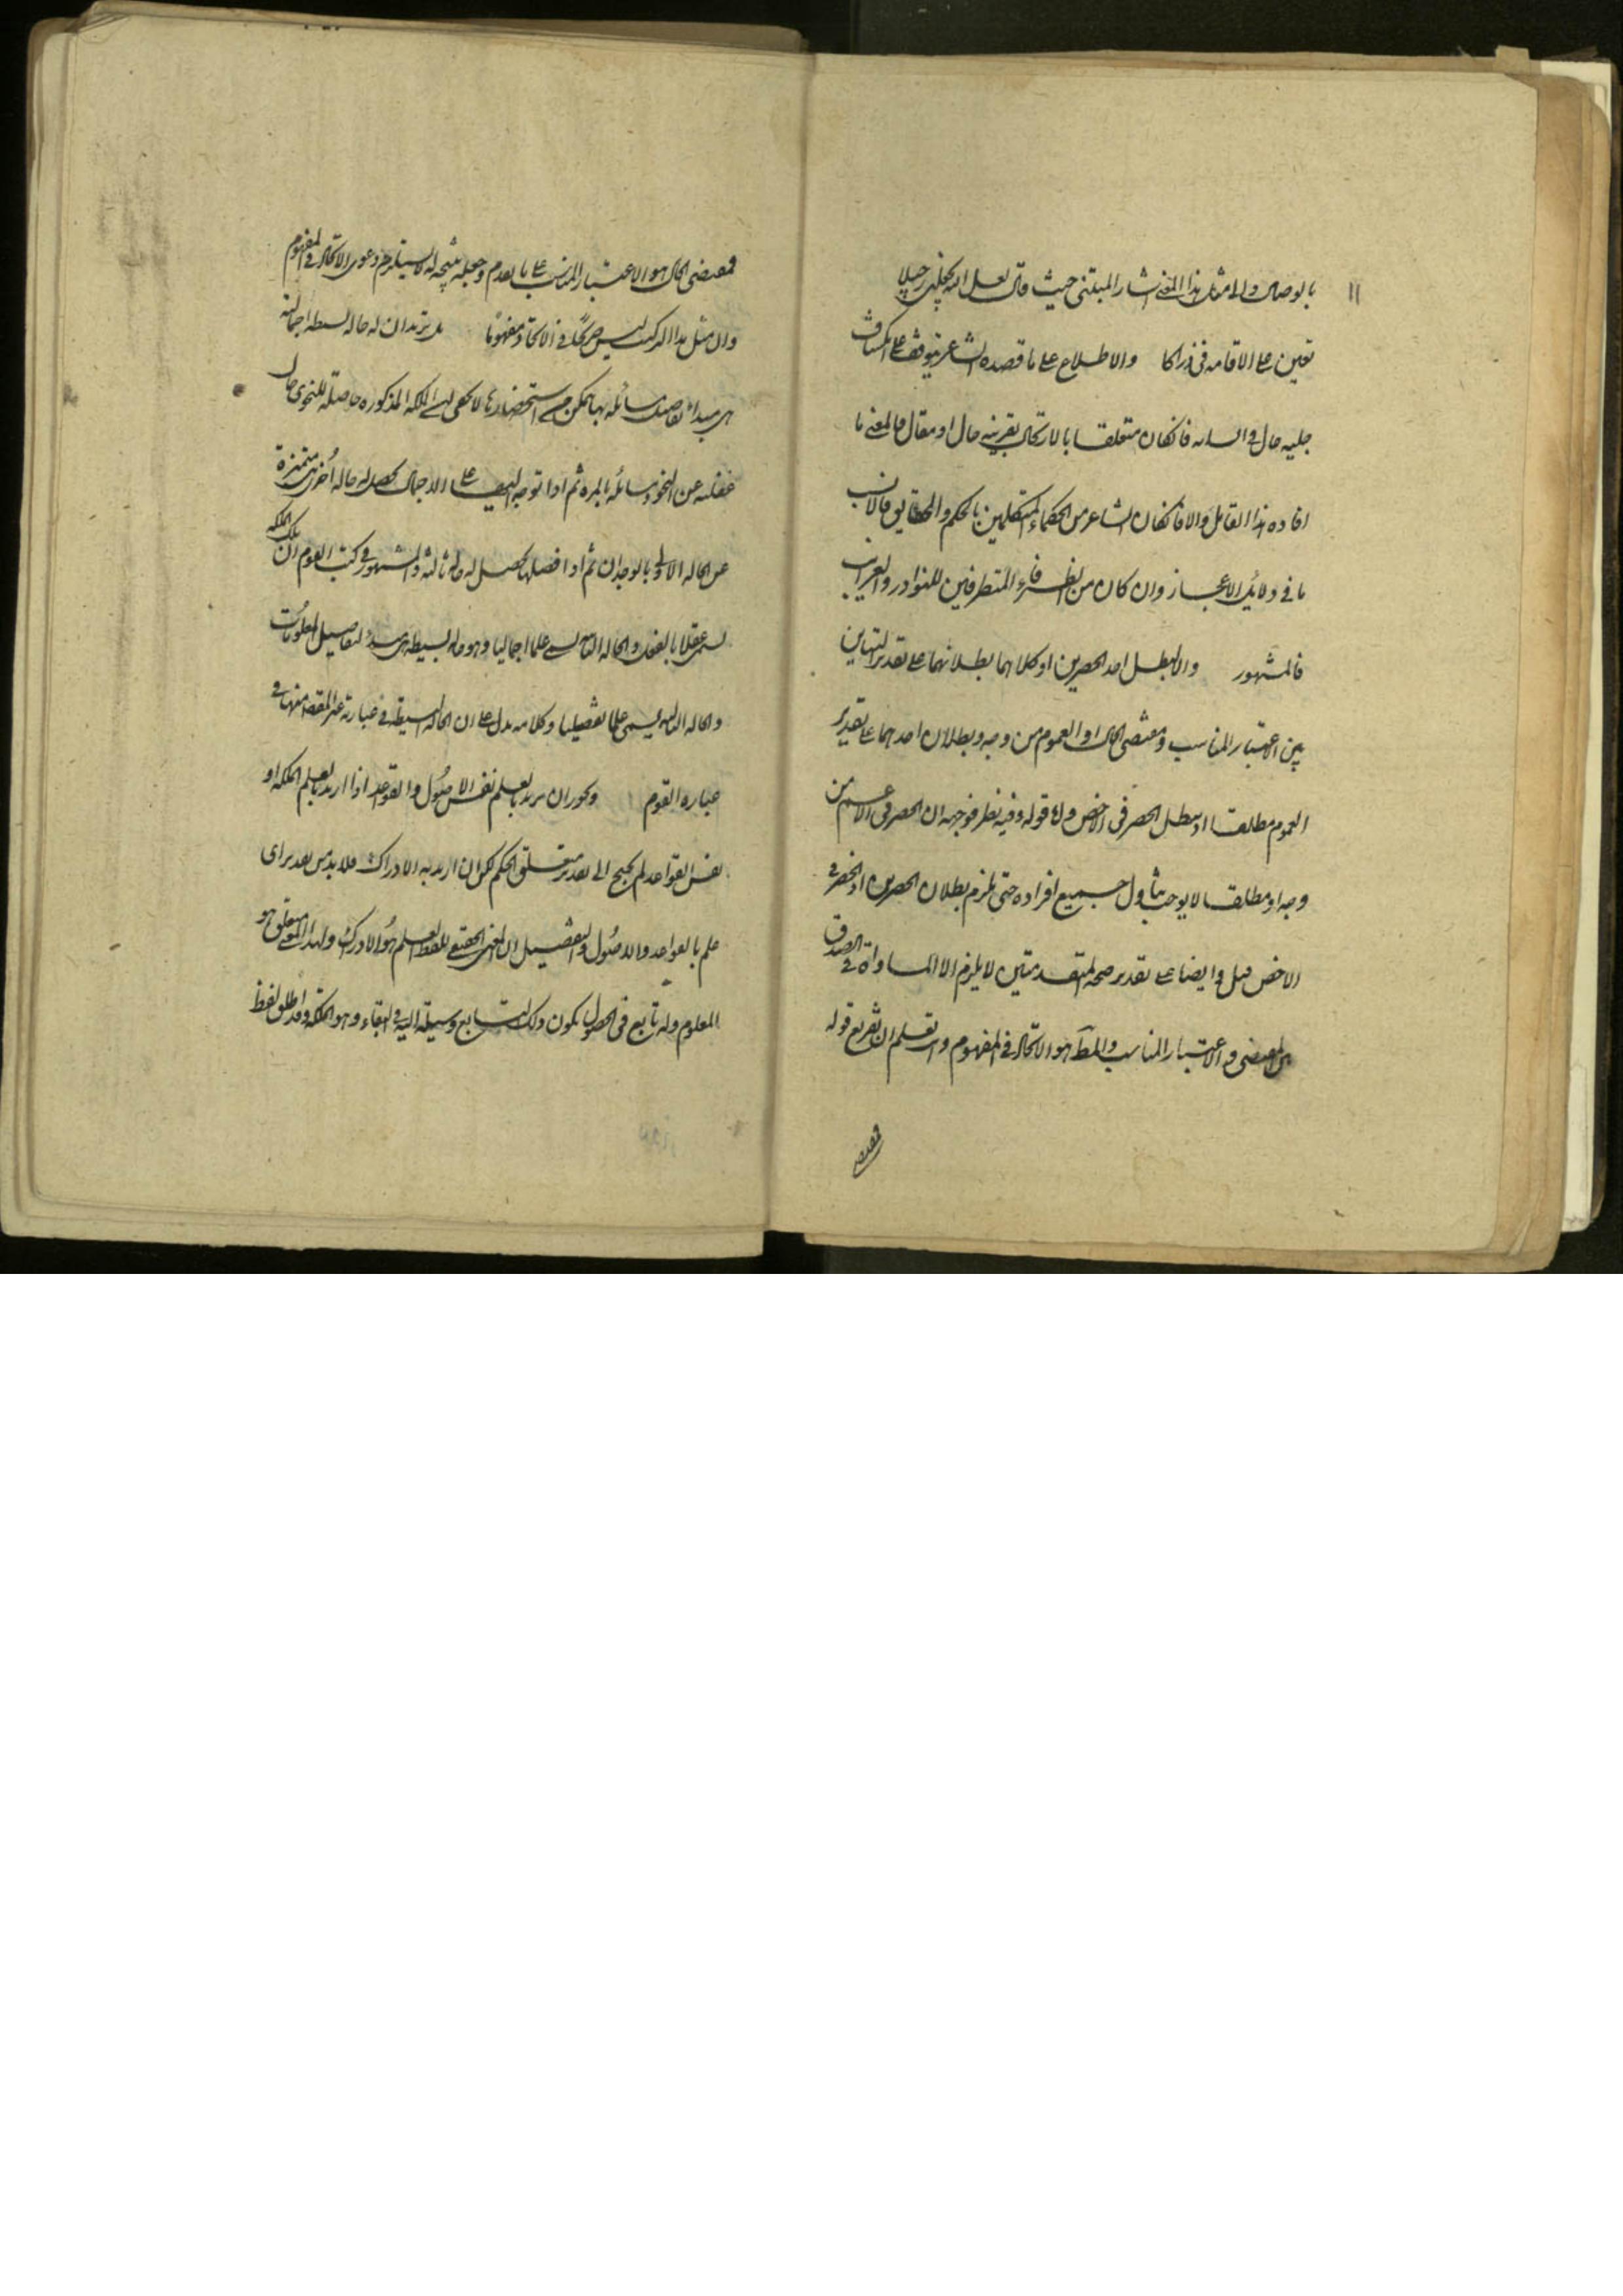 ١١
بالوصال والى مثل هذا المعنى اشار المتنبى حيث قال لعل الله يجعله رحيلا
تعين على الاقامة فى ذراكا والاطلاع على ما قصده الشاعر يتوقف على انكشاف
جلية حال فى انسانه فانكان متعلقا بالارتحال بقرينة حال او مقال فالمعنى ما
افاده هذا القائل والا فانكان الشاعر من الحكماء المتكلمين بالحكم والحقايق فالانسب
ما فى دلايل الاعجاز وان كان من الظرفاء المتطرفين للنوادر والغرايب
فالمشهور والا لبطل احد الحصرين او كلاهما بطلانهما على تقدير التباين
بين اعتبار المناسب ومقتضى الحال او العموم من وجه وبطلان احدهما على تقدير
العموم مطلقا اذ يبطل الحصر فى الاخص واما قوله وفيه نظر فوجهه ان الحصر فى الاعم من
وجه او مطلقا لا يوجب تناول جميع افراده حتى يلزم بطلان الحصرين او الحصر فى
الاخص قيل وايضا على تقدير صحة المقدمتين لا يلزم الا المساواة فى الصدق
بين المقتضى والاعتبار المناسب والمط هو الاتحاد فى المفهوم وانت تعلم ان تفريع قوله
فمقتضى
فمقتضى الحال هو الاعتبار المناسب على ما تقدم وجعله نتيجة له لا يستلزم دعوى الاتحاد فى المفهوم
وان مثل هذا التركيب ليس صريحا فى الاتحاد مفهوما بل يريد ان له حالة بسيطة اجمالية
هى مبداء تفاصيل مسائله بها يتمكن من استحضارها لا يخفى ان الملكة المذكورة حاصلة للنحوى حال
غفلته عن النحو ومسائله بالمرة ثم اذا توجه اليها على الاجمال يحصل له حالة اخرى متميزة
عن الحالة الاولى بالوجدان ثم اذا فصلها يحصل له حالة ثالثة والمشهور فى كتب القوم ان تلك الملكة
تسمى عقلا بالفعل والحالة الثانية تسمى علما اجماليا وهو حالة بسيطة هى مبدء لتفاصيل المعلومات
والحالة الثالثة تسمى علما تفصيليا وكلامه يدل على ان الحالة البسيطة فى عبارته غير المقصد منها فى
عبارة القوم ويجوز ان يريد بالعلم نفس الاصول والقواعد اذا اريد بالعلم الملكة او
نفس القواعد لم يحتج الى تقدير متعلق الحكم لكن ان اريد به الادراك فلا بد من تقدير اى
علم بالقواعد والاصول والتفصيل ان المعنى الحقيقى للفظ العلم هو الادراك ولهذا المعنى متعلق هو
المعلوم وله تابع فى الحصول يكون ذلك التابع وسيلة اليه فى البقاء وهو الملكة وقد اطلق لفظ